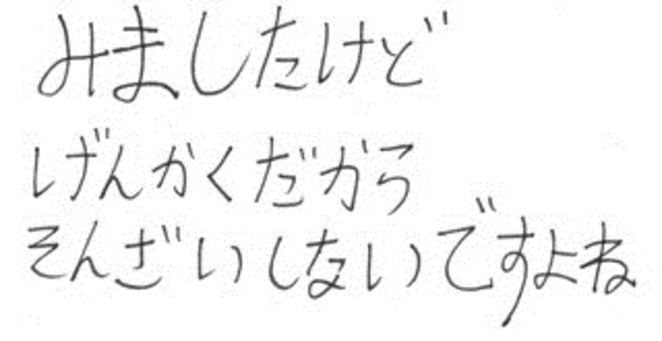 みましたけど
げんかくだから
そんざいしないですよね